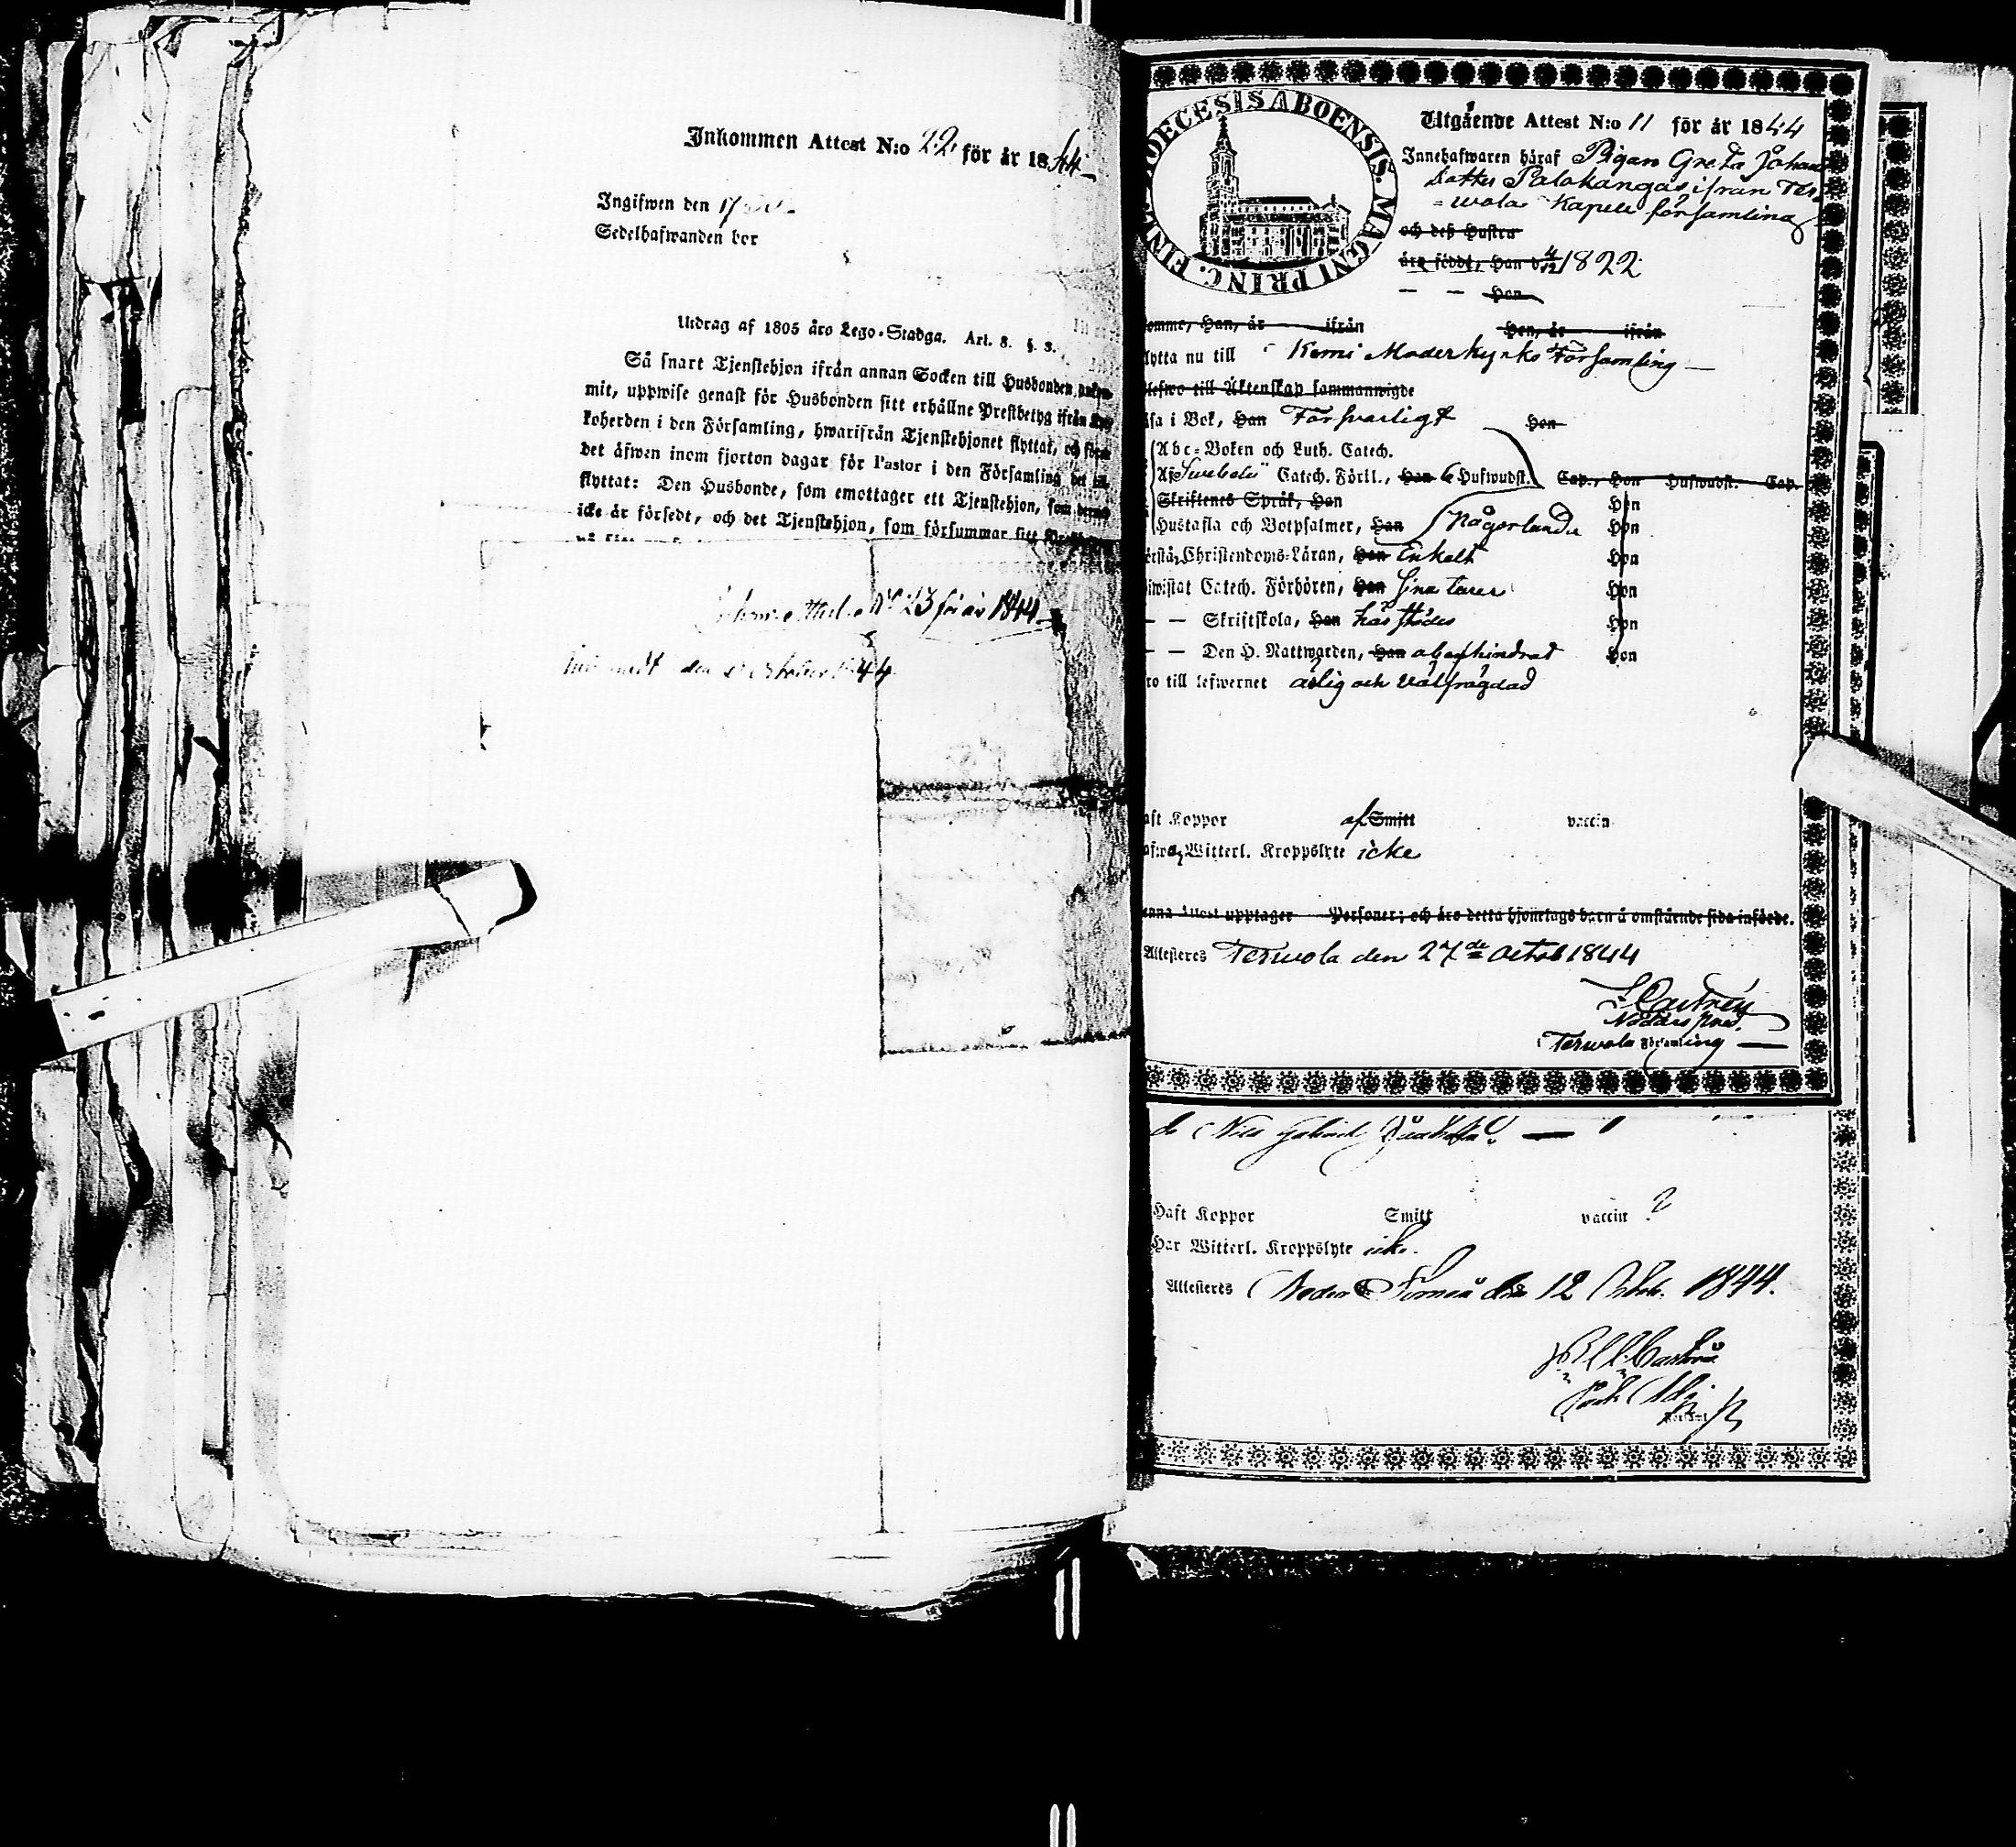 Inkommen Attest N:o 22 för år 1844
Ingifwen den 17
Sedelhafwanden bor
Utdrag af 1805 års Lego-Stadga. Art. 8. §. 3.
Så snart Tjenstehjon ifrån annan Socken till Husbonden
mit, uppwise genast för Husbonden sitt erhållne Prestbetyg ifrån
koherden i den Församling, hwarifrån Tjenstehjonet flyttat, och
det äfwen inom fjorton dagar för Pastor i den Församling det
flyttat: Den Husbonde, som emottager ett Tjenstehjon, som
icke är försedt, och det Tjenstehjon, som försummar sitt
N:o 23 för år 1844
den October 1844
DIOECESIS ABOENSIS. MAGNI PRINC. FINL.
Utgående Attest N:o 11 för år 1844
Innehafwaren häraf Pigan Greta Johans
dotter Palokangas ifrån Ter
=wola Kapell församling
och deß Hustru
äro födde, Han d 4/12 1822
— — Hon
komne, Han, år ifrån Hon, år ifrån
flytta nu till Kemi Moderkyrko Församling —
till Äktenskap sammanwigde
läsa i Bok, Han Försvarligt Hon
Abc-Boken och Luth. Catech.
Af Svebelii Catech. Förkl., Han 6 Hufwudst. Cap., Hon Hufwudst. Cap.
Skriftenes Språk, Han Hon
Hustafla och Botpsalmer, Han Någorlunda Hon
Christendoms-Läran, Han Enkelt Hon
Catech. Förhören, Han sina Hon
— — Skriftskola, Han Hon
— — Den H. Nattwarden, Han obehindrad Hon
till lefwernet ärlig och välfrägdad
haft Koppor af Smitt vaccin
Witterl. Kroppslyte icke
Denna Attest upptager Personer; och äro detta hjonelags barn å omstående sida införde.
Attesteras Terwola den 27de Octob 1844
Castrén
Terwola Församling —
Nils Gabriel
Haft Koppor Smitt vaccin ?
Har Witterl. Kroppslyte icke.
Attesteras Neder Torneå den 12 Octob. 1844.